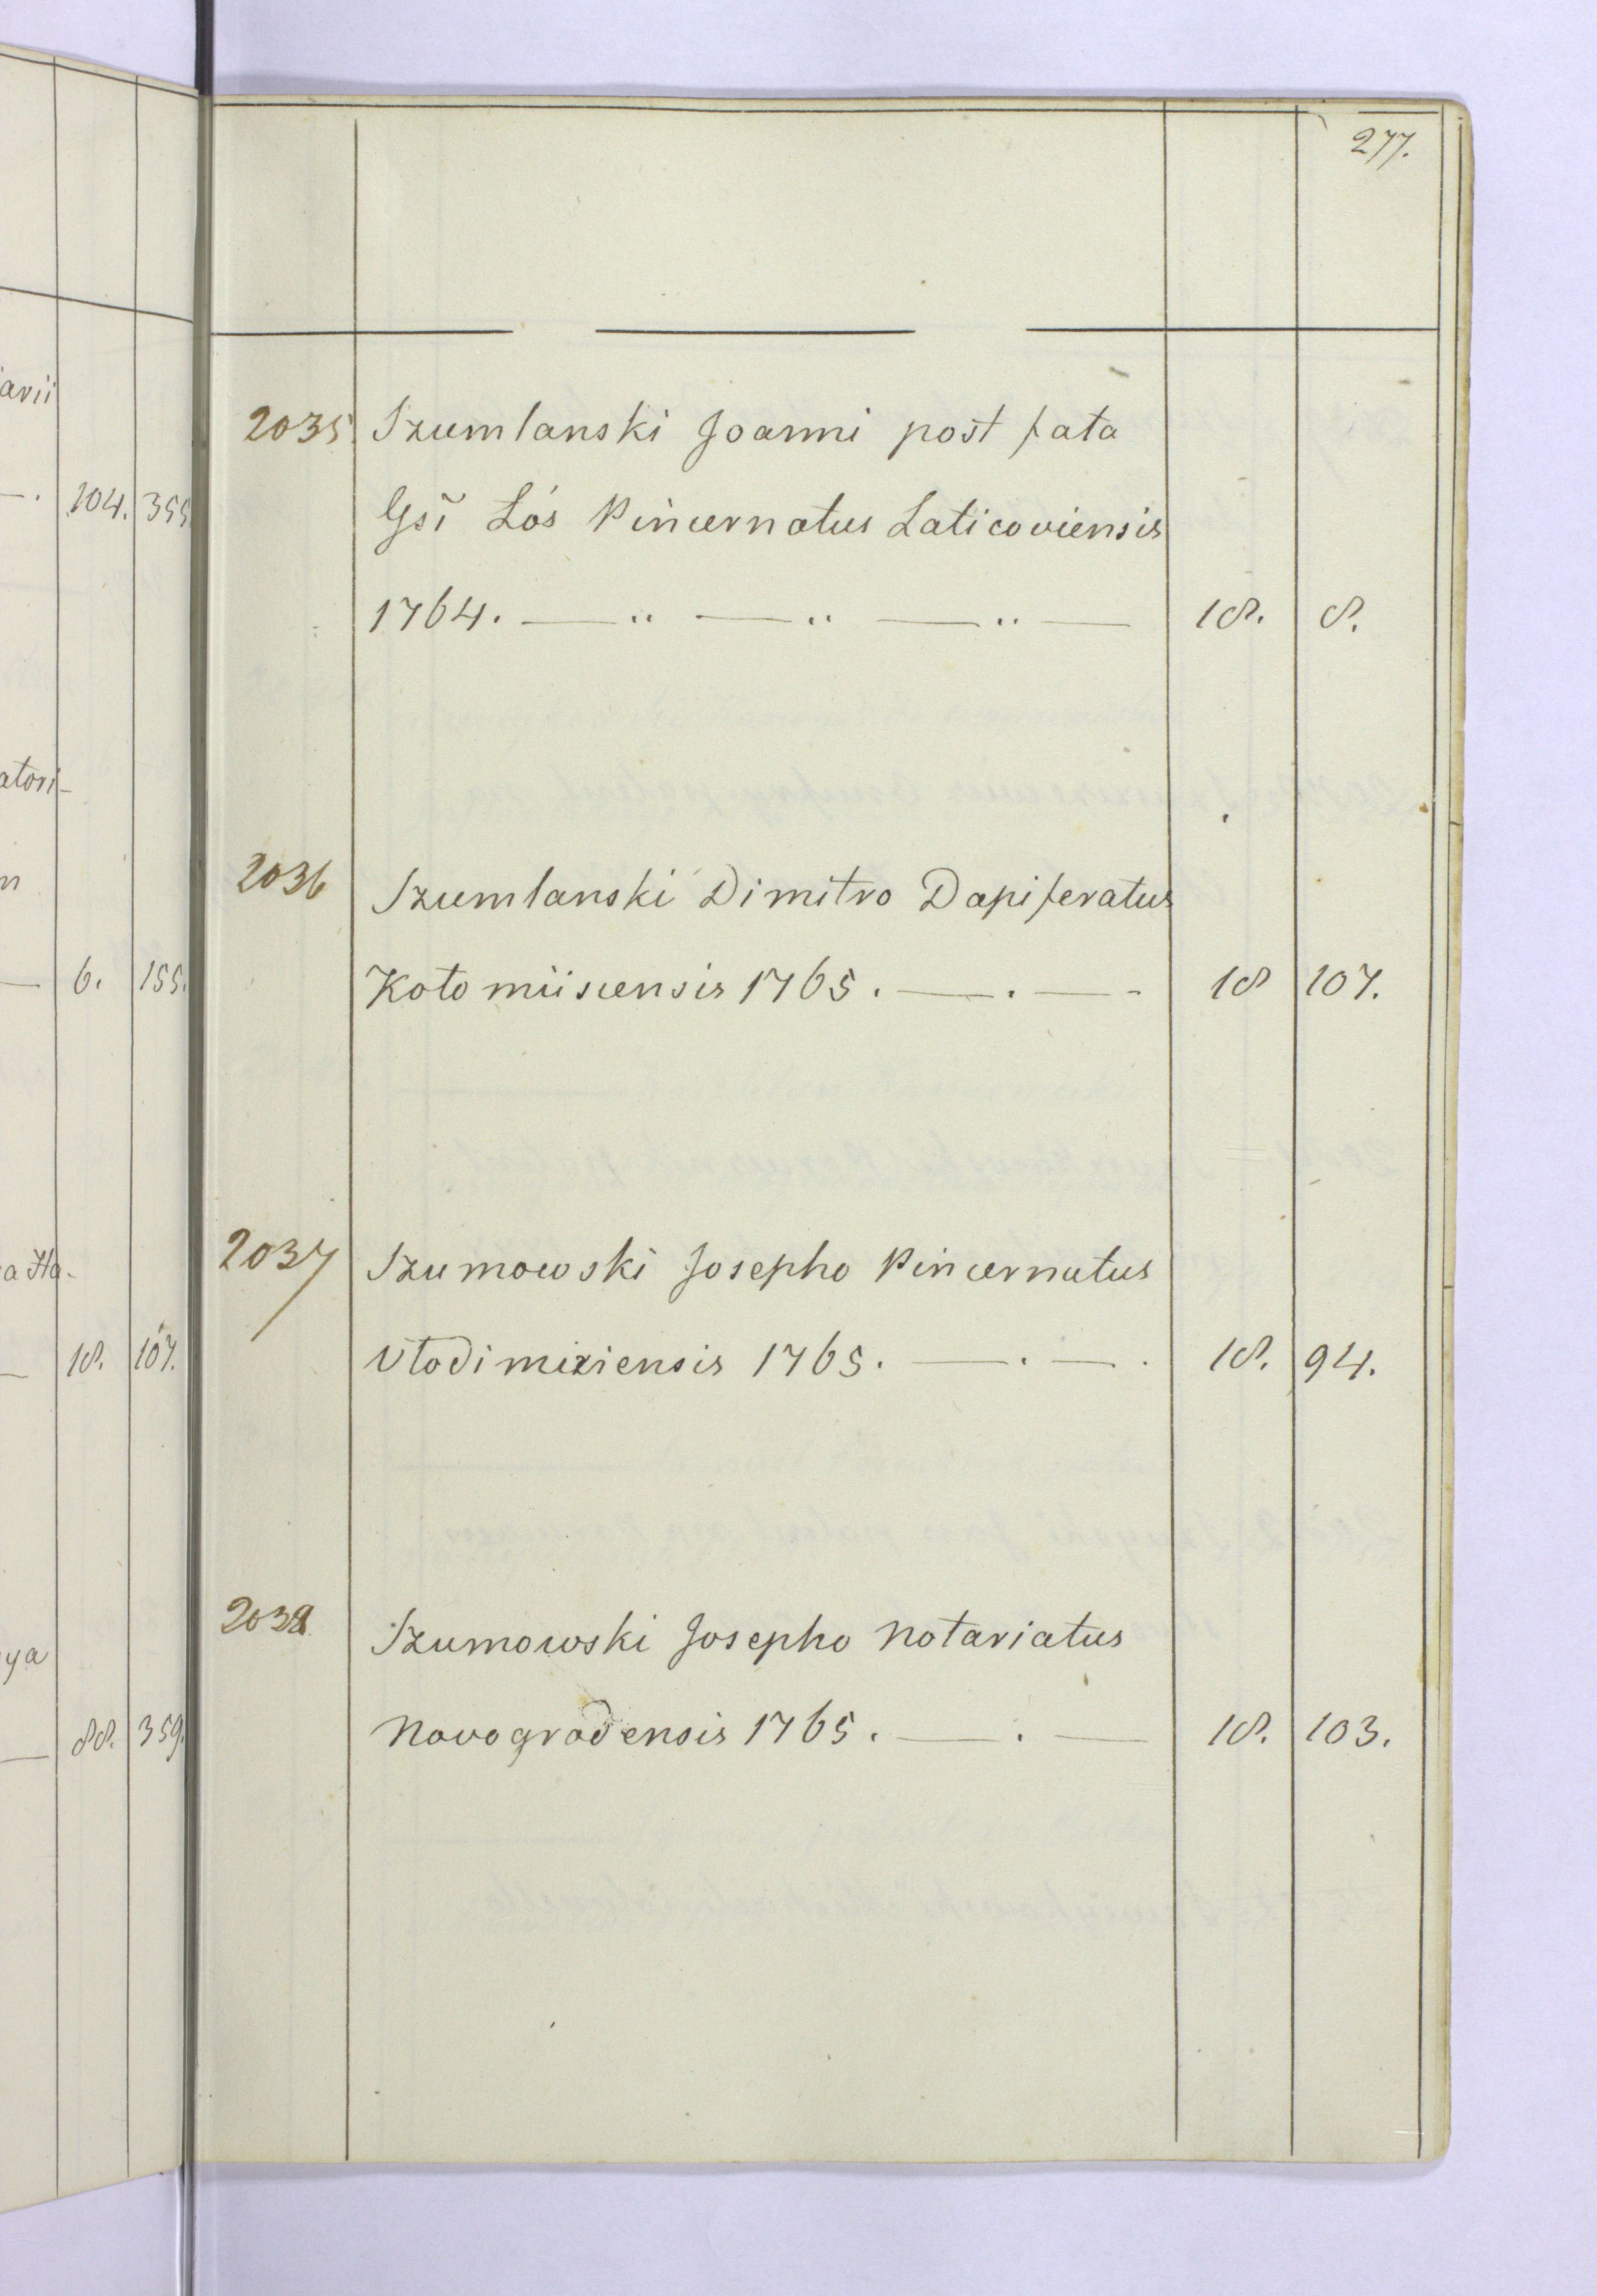 arii
—. 104. 355.
atori-
n
— 6. 155.
a Ha-
— 18. 107.
ya
— 88. 359.
277.
2035 Szumlanski Joanni post fata
Gsi Łós Pincernatus Laticoviensis
1764. — .. — .. — .. — 18. 8.
2036 Szumlanski Dimitro Dapiferatus
Kołomiiscensis 1765. — . — - 18 107.
2037 Szumowski Josepho Pincernatus
Vłodimiriensis 1765. — . — . 18. 94.
2038 Szumowski Josepho Notariatus
Novogrodensis 1765. — . — 18. 103.